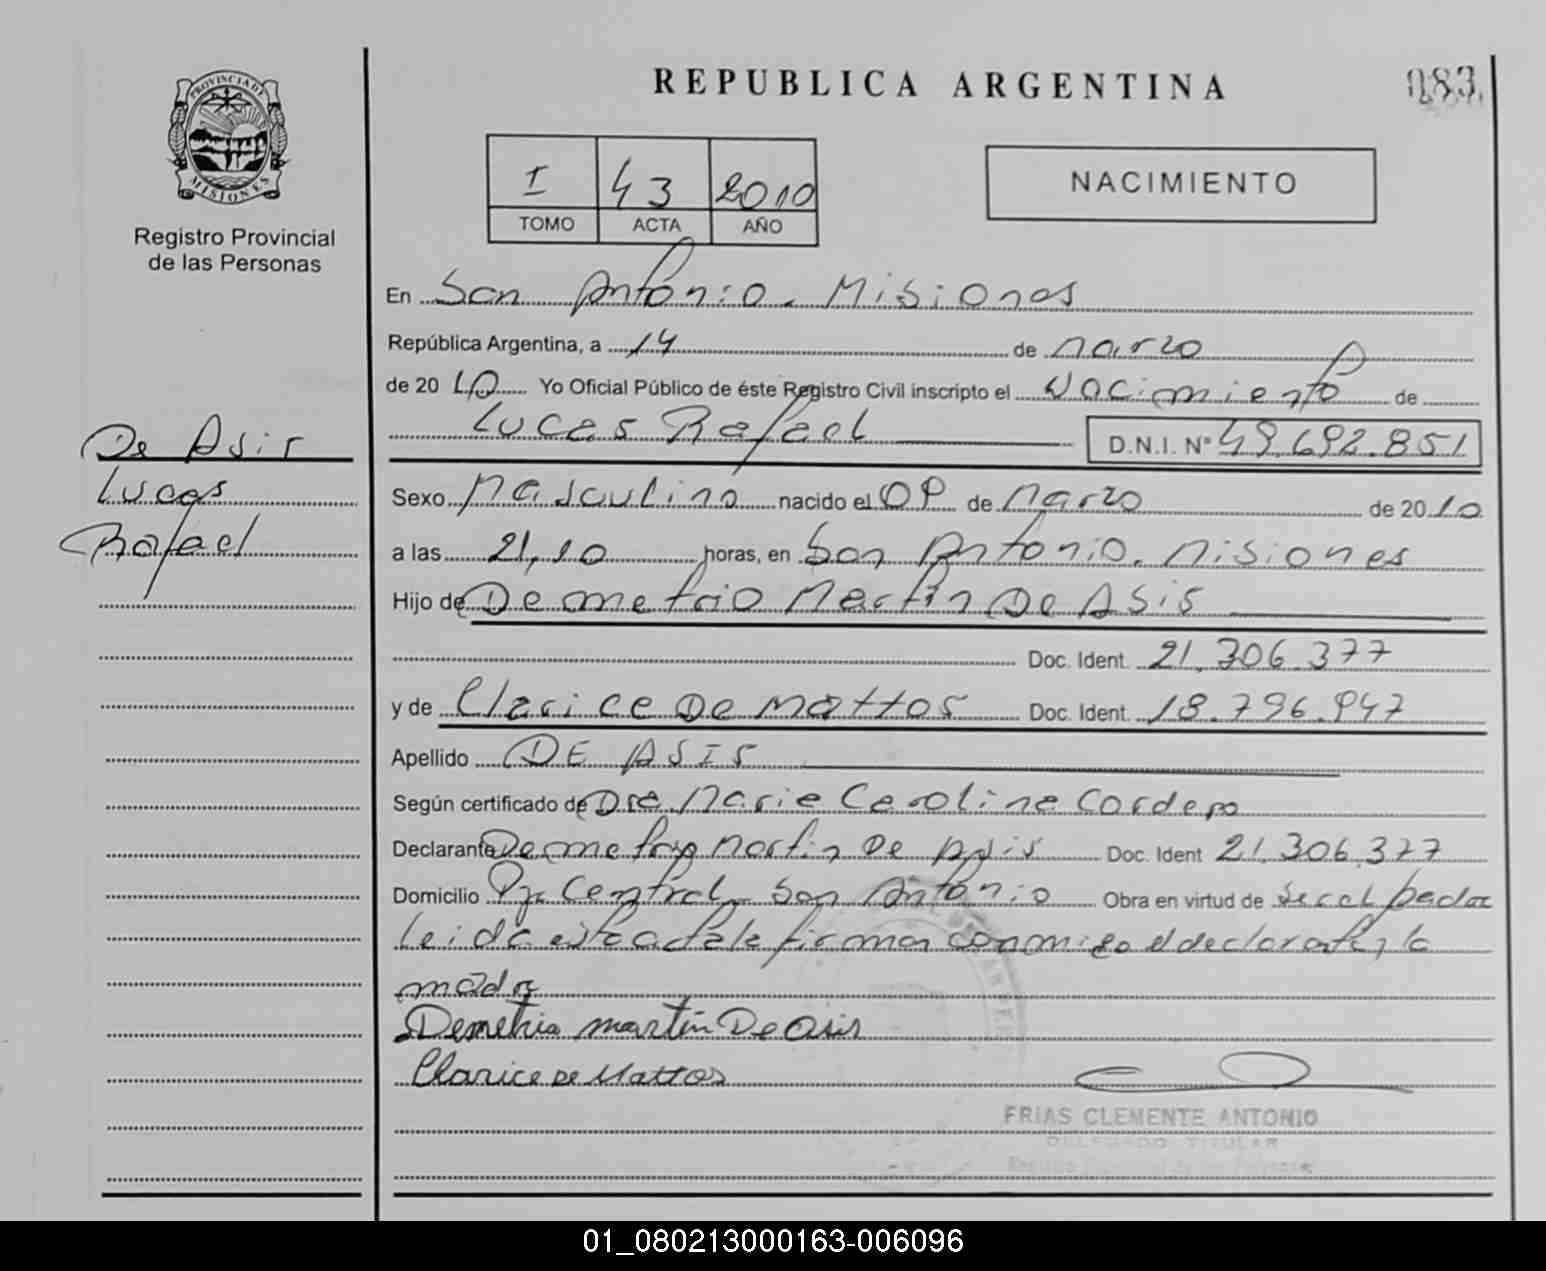 REPUBLICA ARGENTINA
083
PROVINCIA DE MISIONES
Registro Provincial
de las Personas
I 43 2010
TOMO ACTA AÑO
NACIMIENTO
En San Antonio. Misiones
República Argentina, a 14 de Marzo
de 20 10 Yo Oficial Público de éste Registro Civil inscripto el Nacimiento de
Lucas Rafael D.N.I. Nº 49.692.851
De Asis
Lucas
Rafael
Sexo Masculino nacido el 09 de Marzo de 20 10
a las 21,10 horas, en San Antonio. Misiones
Hijo de Demetrio Martin De Asis
Doc. Ident. 21.306.377
y de Clarice De Mattos Doc. Ident. 18.796.947
Apellido DE ASIS
Según certificado de Dra. Maria Carolina Cordero
Declarante Demetrio Martin De Asis Doc. Ident 21.306.377
Domicilio Pje Central San Antonio Obra en virtud de ser el padre
Leida este acta la firman conmigo el declarante y la
madre
Demetrio martin De Asis
Clarice De Mattos
FRIAS CLEMENTE ANTONIO
DELEGADO TITULAR
01_080213000163-006096